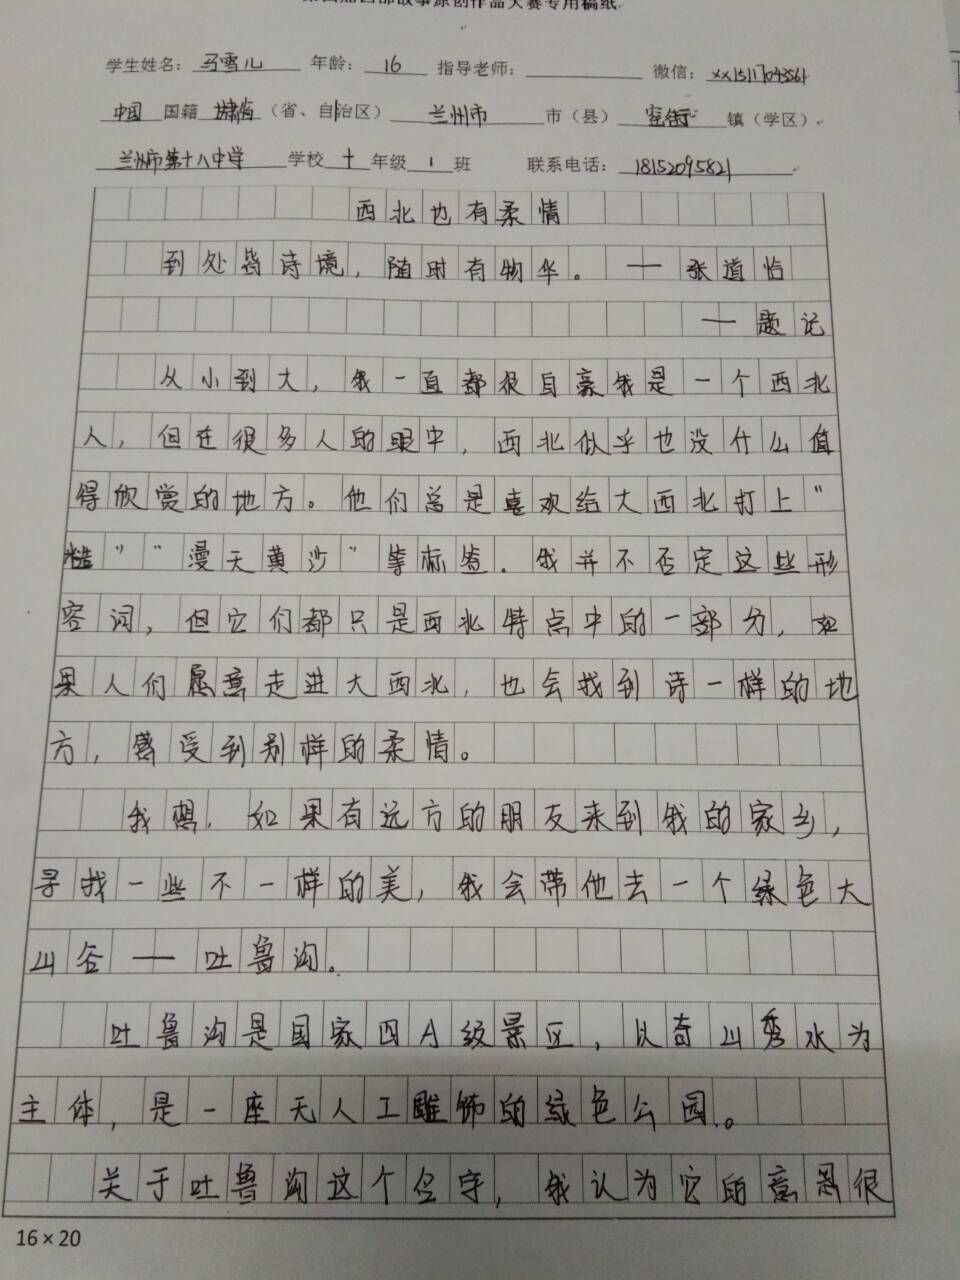 原创作品大赛专用稿纸
学生姓名：马雪儿 年龄：16 指导老师： 微信：xx15117043561
中国 国籍 甘肃省（省、自治区） 兰州市 市（县） 窑街 镇（学区）
兰州市第十八中学 学校 十 年级 1 班 联系电话：18152095821
西北也有柔情
到处皆诗境，随时有物华。——张道怡
——题记
从小到大，我一直都很自豪我是一个西北
人，但在很多人的眼中，西北似乎也没什么值
得欣赏的地方。他们总是喜欢给大西北打上“
糙”“漫天黄沙”等标签．我并不否定这些形
容词，但它们都只是西北特点中的一部分，如
果人们愿意走进大西北，也会找到诗一样的地
方，感受到别样的柔情。
我想，如果有远方的朋友来到我的家乡，
寻找一些不一样的美，我会带他去一个绿色大
山谷——吐鲁沟。
吐鲁沟是国家四A级景区，以奇山秀水为
主体，是一座无人工雕饰的绿色公园。
关于吐鲁沟这个名字，我认为它的意思很
16×20